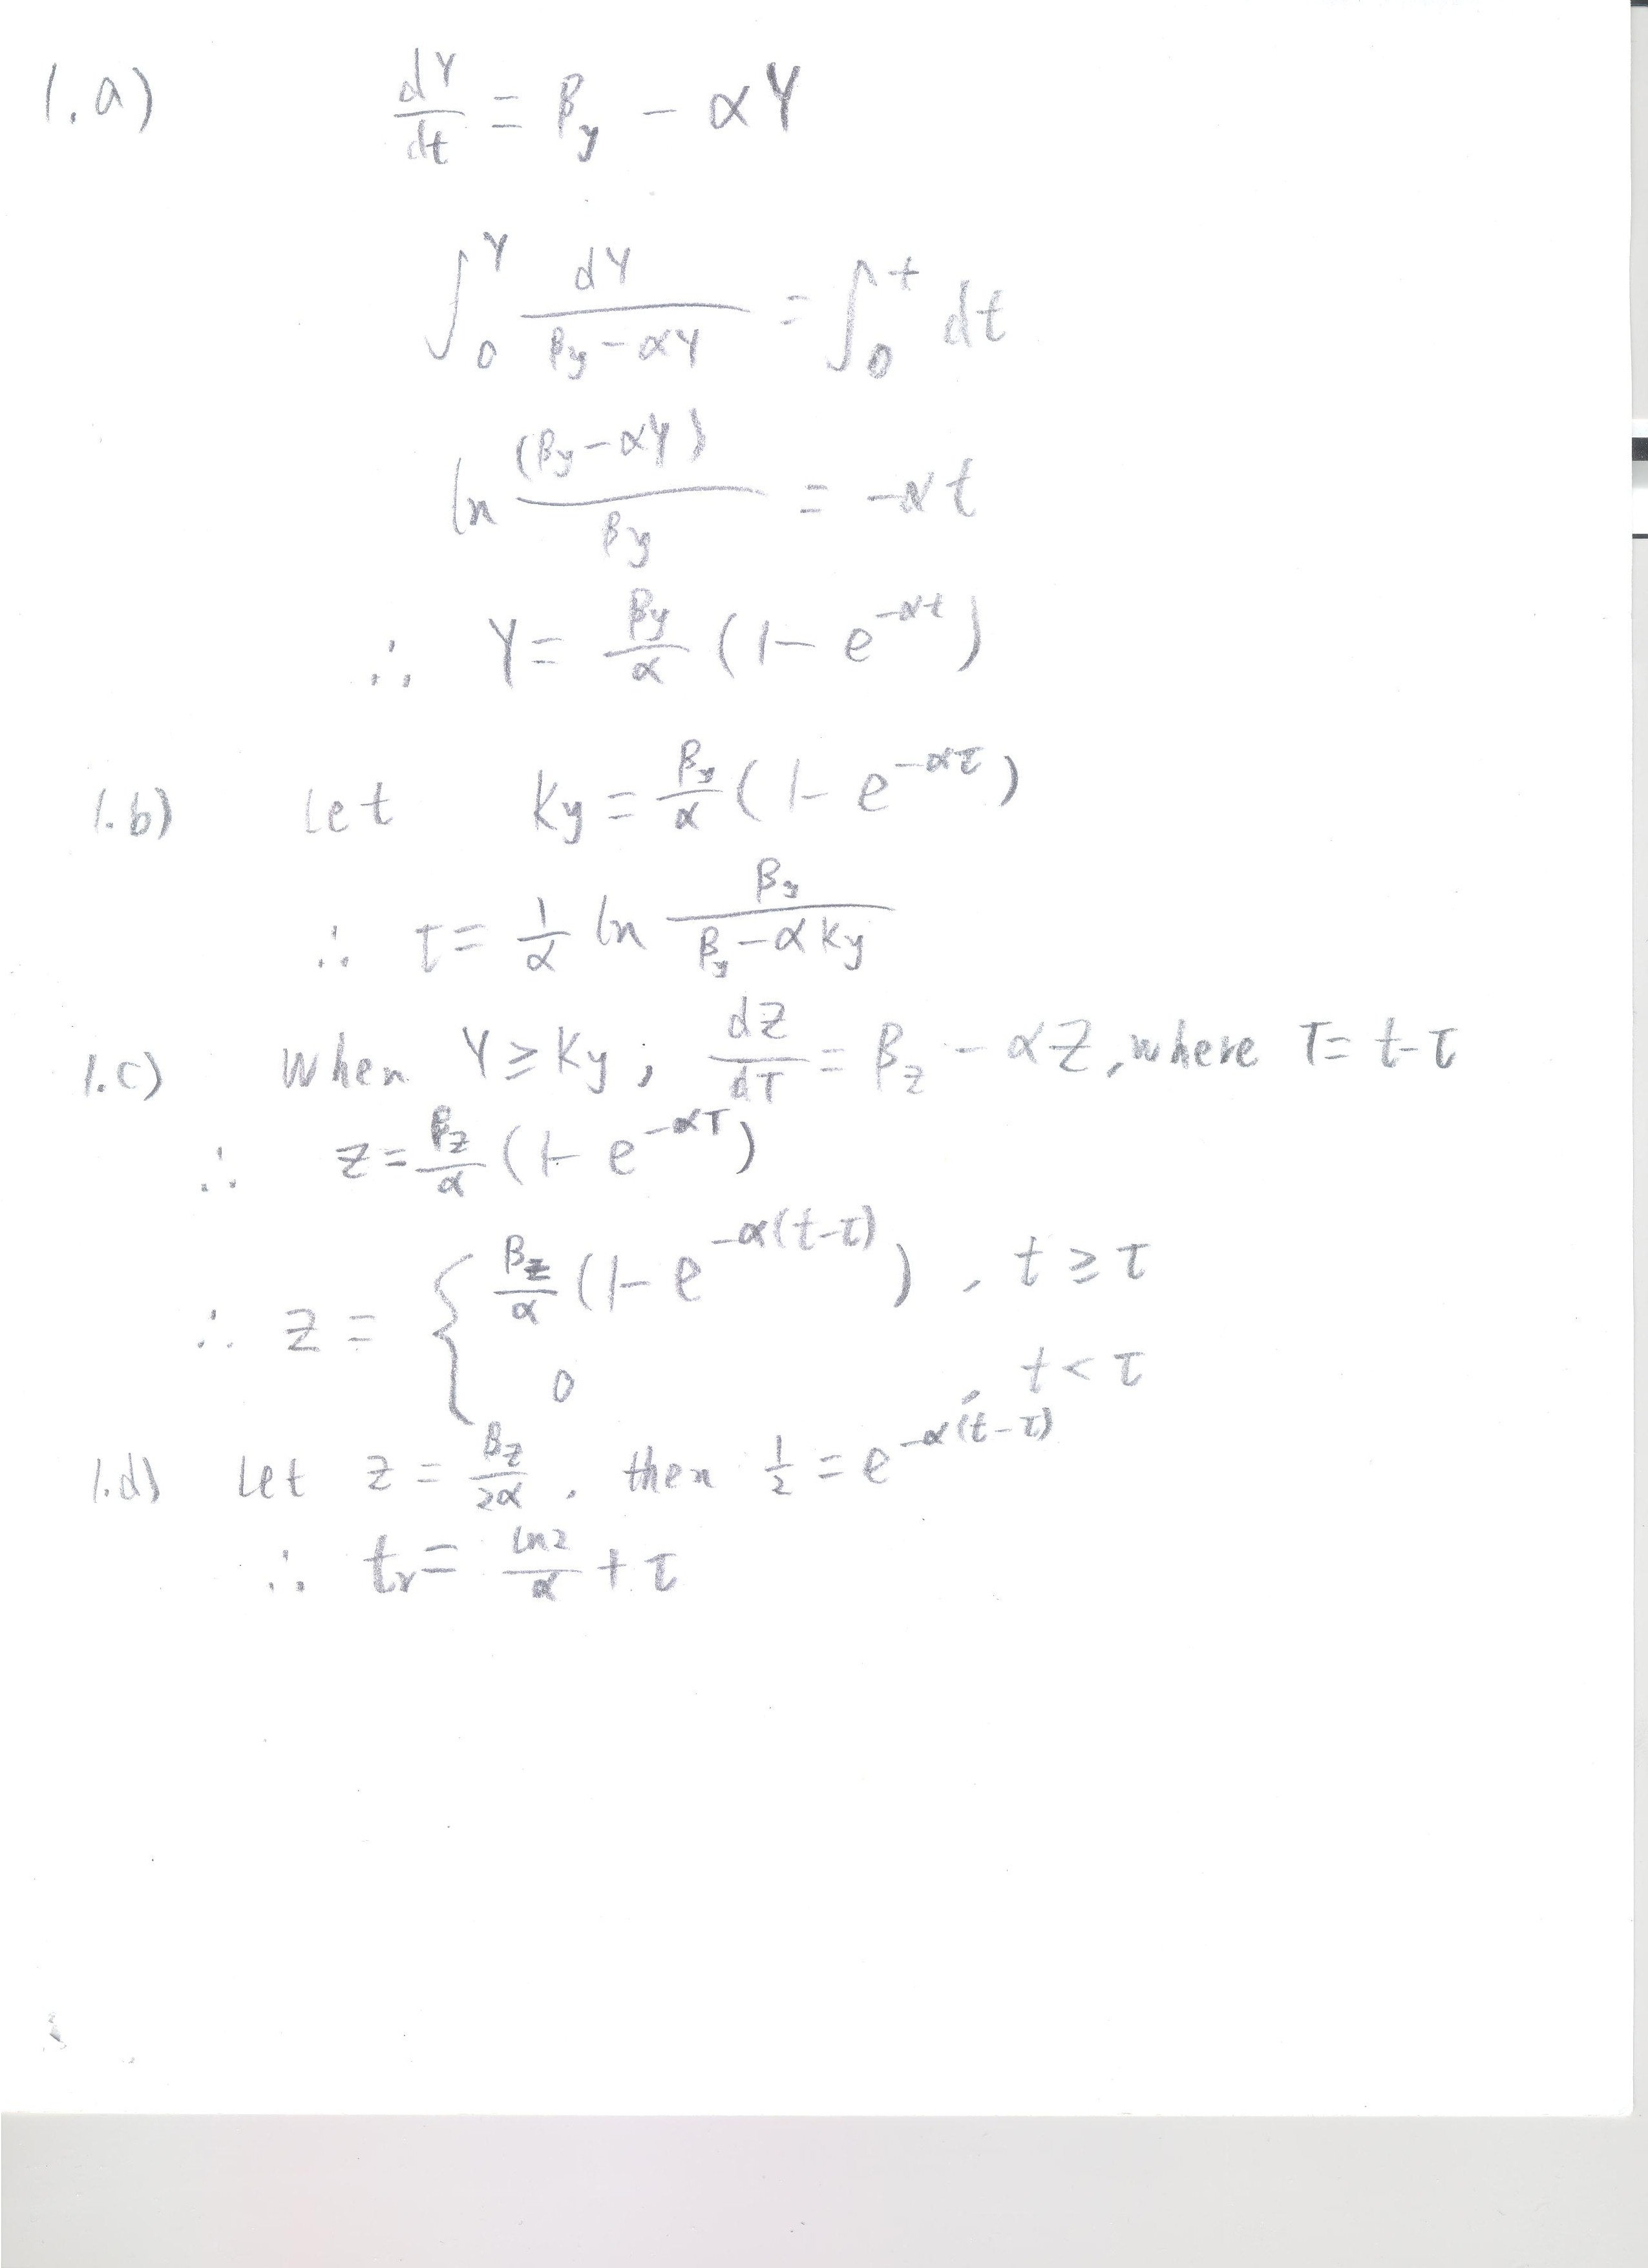 1.a) dY/dt = βy - αY
∫₀^Y dY/(βy - αY) = ∫₀^t dt
ln (βy - αY)/βy = -αt
∴ Y = βy/α (1 - e^(-αt))
1.b) Let Ky = βy/α (1 - e^(-ατ))
∴ τ = 1/α ln βy/(βy - αKy)
1.c) When Y ≥ Ky, dZ/dT = βz - αZ, where T = t-τ
∴ Z = βz/α (1 - e^(-αT))
∴ Z = { βz/α (1 - e^(-α(t-τ))), t ≥ τ
0, t < τ
1.d) Let Z = βz/2α, then 1/2 = e^(-α(t-τ))
∴ tr = ln2/α + τ